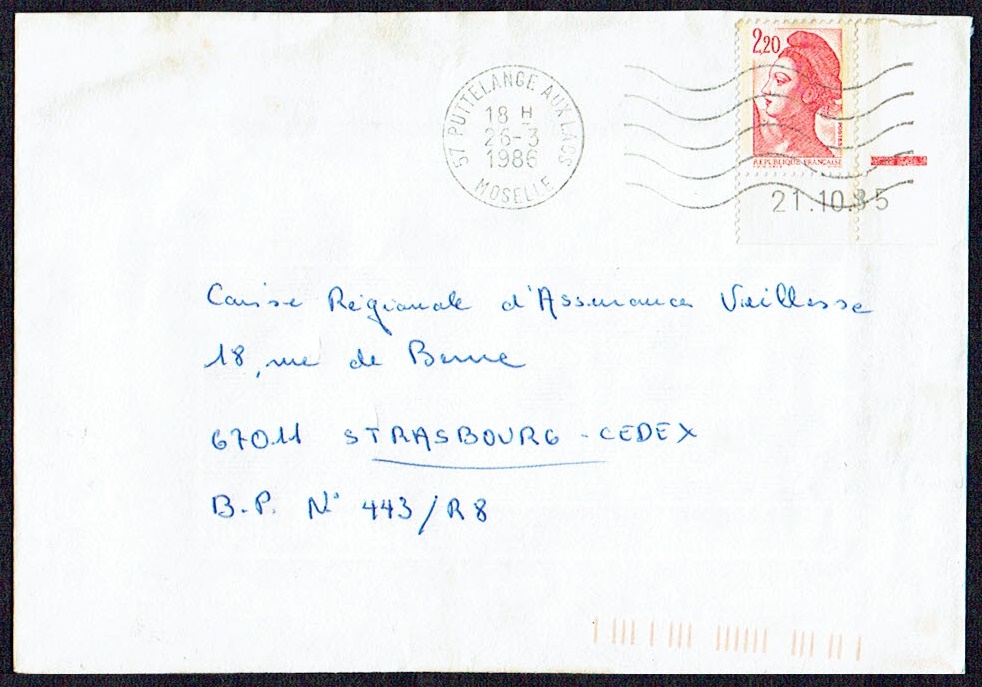 2,20
POSTES
REPUBLIQUE FRANÇAISE
57 PUTTELANGE AUX LACS
18 H
26-3
1986
MOSELLE
21.10.85
Caisse Régionale d'Assurances Vieillesse
18, rue de Berne
67011 STRASBOURG - CEDEX
B.P. N° 443/R8